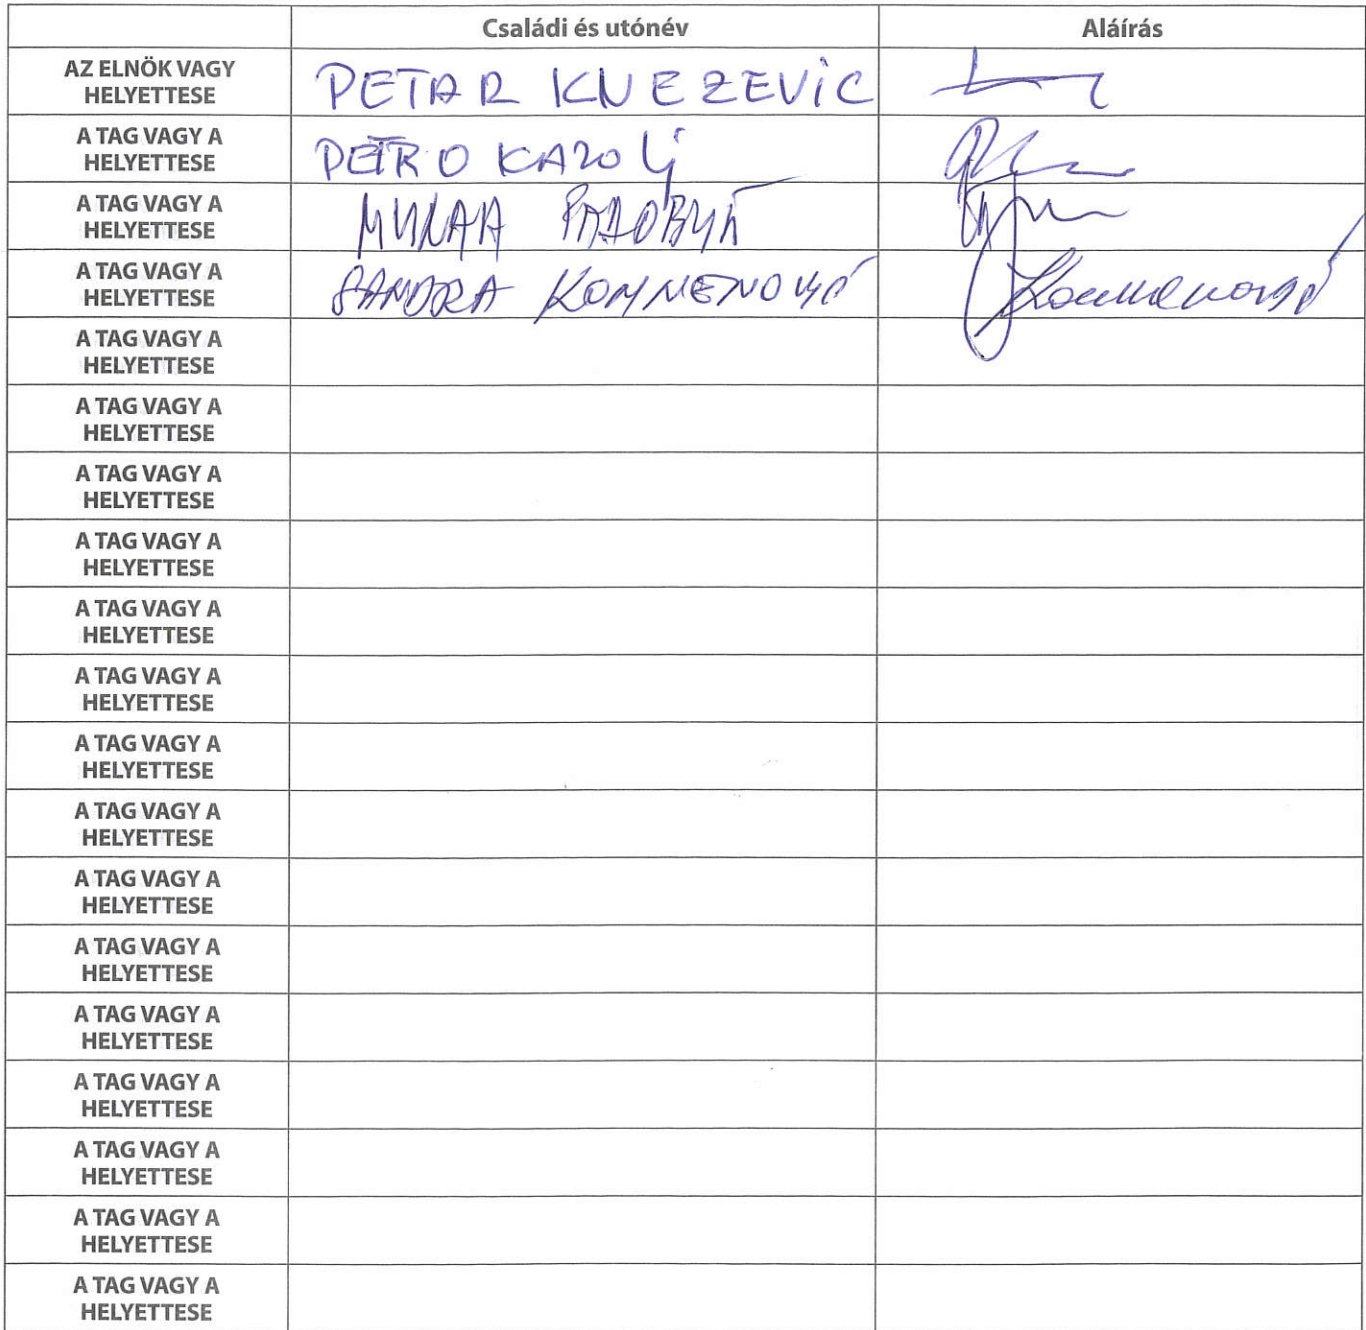 Családi és utónév Aláírás
AZ ELNÖK VAGY
HELYETTESE
PETAR KNEZEVIC
A TAG VAGY A
HELYETTESE
PETRO
A TAG VAGY A
HELYETTESE
A TAG VAGY A
HELYETTESE
SANDRA
A TAG VAGY A
HELYETTESE
A TAG VAGY A
HELYETTESE
A TAG VAGY A
HELYETTESE
A TAG VAGY A
HELYETTESE
A TAG VAGY A
HELYETTESE
A TAG VAGY A
HELYETTESE
A TAG VAGY A
HELYETTESE
A TAG VAGY A
HELYETTESE
A TAG VAGY A
HELYETTESE
A TAG VAGY A
HELYETTESE
A TAG VAGY A
HELYETTESE
A TAG VAGY A
HELYETTESE
A TAG VAGY A
HELYETTESE
A TAG VAGY A
HELYETTESE
A TAG VAGY A
HELYETTESE